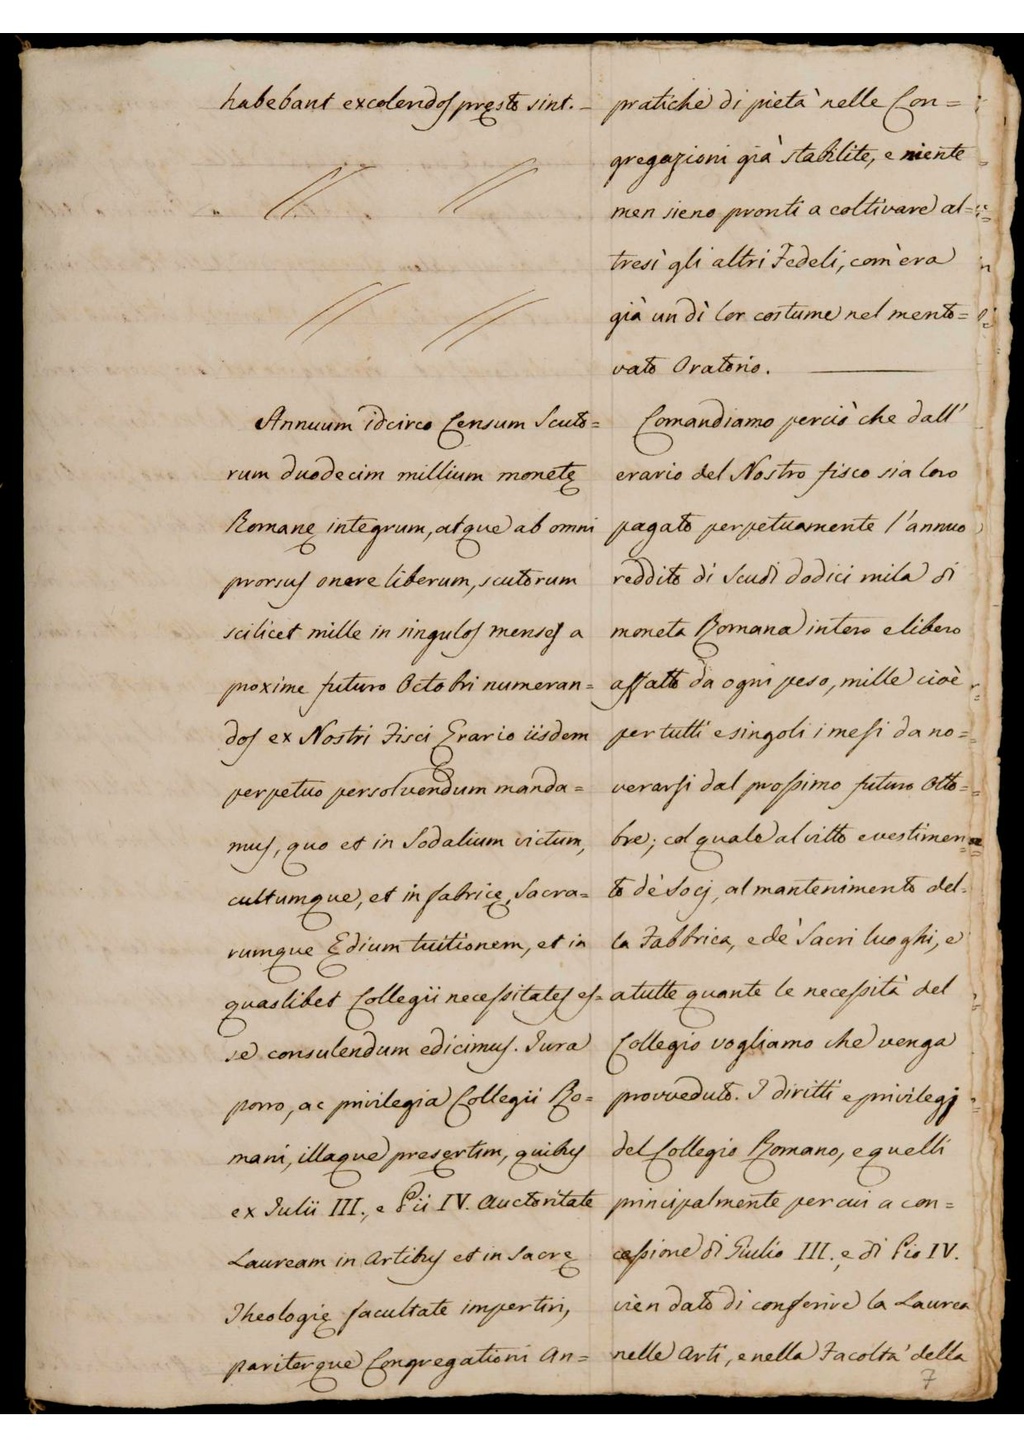 habebant excolendos pręsto sint. =
Annuum idcirco Censum Scuto=
rum duodecim millium monetę
Romanę integrum, atque ab omni
prorsus onere liberum, scutorum
scilicet mille in singulos menses a
proxime futuro Octobri numeran=
dos ex Nostri Fisci Ęrario iisdem
perpetuo persolvendum manda=
mus, quo et in Sodalium victum,
cultumque, et in fabricę, Sacra=
rumque Ędium tuitionem, et in
quaslibet Collegii necessitates es=
se consulendum edicimus. Jura
porro, ac privilegia Collegii Ro=
mani, illaque presęrtim, quibus
ex Julii III., e Pii IV. Auctoritate
Lauream in Artibus et in Sacrę
Theologię facultate impertiri,
pariterque Congregationi An=
pratiche di pietà nelle Con=
gregazioni già stabilite, e niente
men sieno pronti a coltivare al=
tresì gli altri Fedeli, com'era
già un dì lor costume nel mento=
vato Oratorio.
Comandiamo perciò che dall'
erario del Nostro fisco sia loro
pagato perpetuamente l'annuo
reddito di Scudi dodici mila di
moneta Romana intero e libero
affatto da ogni peso, mille cioè
per tutti e singoli i mesi da no=
verarsi dal prossimo futuro Otto=
bre; col quale al vitto e vestimen
to dè Socj, al mantenimento del=
la Fabbrica, e dè Sacri luoghi, e
a tutte quante le necessità del
Collegio vogliamo che venga
provveduto. I diritti e privilegj
del Collegio Romano, e quelli
principalmente per cui a con=
cessione di Giulio III., e di Pio IV.
vien dato di conferire la Laurea
nelle Arti, e nella Facoltà della
7